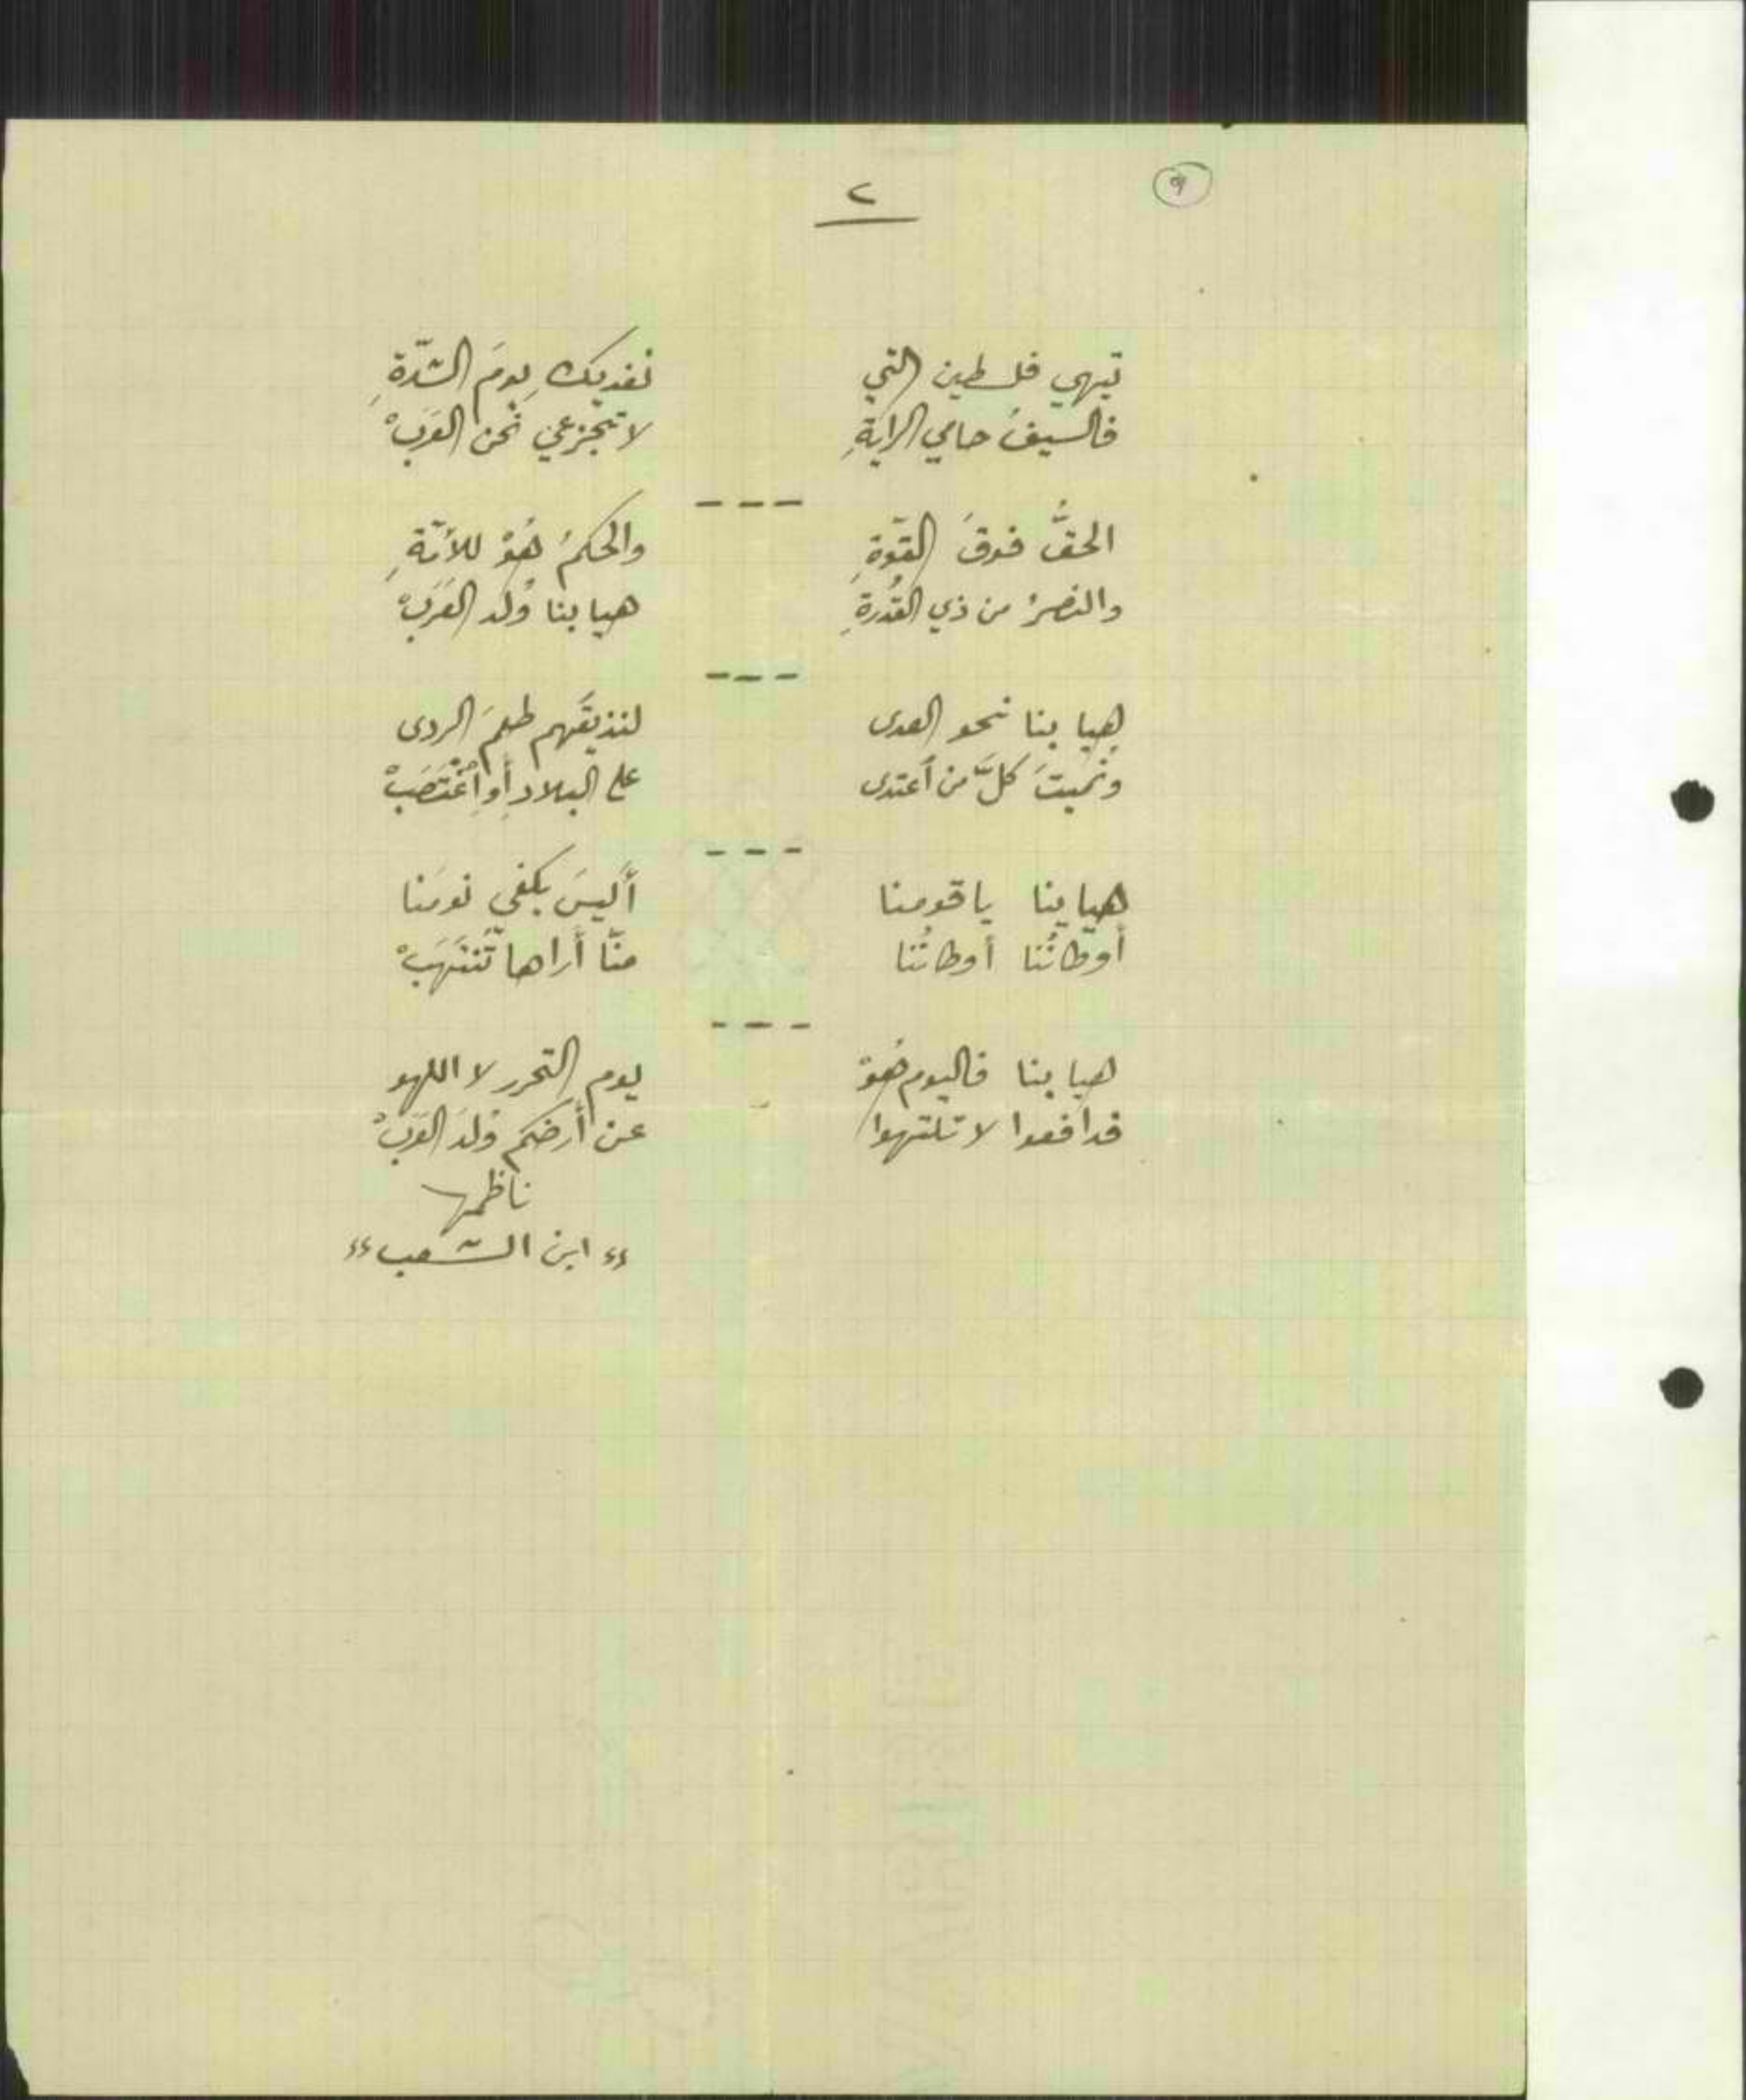 ٩
٢
تيهي فلسطين التي نفديكِ يومَ الشدّةِ
فالسيفُ حامي الرايةِ لا تجزعي نحن العَرَبْ
- - -
الحقُّ فوقَ القوّةِ والحكمُ هُوْ للأمّةِ
والنصرُ من ذي القُدرةِ هيا بنا وُلد العَرَبْ
- - -
هيا بنا نحو العدى لنذيقَهم طعمَ الردى
ونُميتَ كلَّ من أعتدى على البلادِ أو اِغْتَصَبْ
- - -
هيا بنا يا قومنا أليسَ يكفي نومَنا
أوطانُنا أوطانُنا منّا أراها تُنتَهَبْ
- - -
هيا بنا فاليوم هُوْ يوم التحرر لا اللهو
فدافعوا لا تلتهوا عن أرضكم وُلدَ العَرَبْ
ناظمها
"ابن الشّعب"